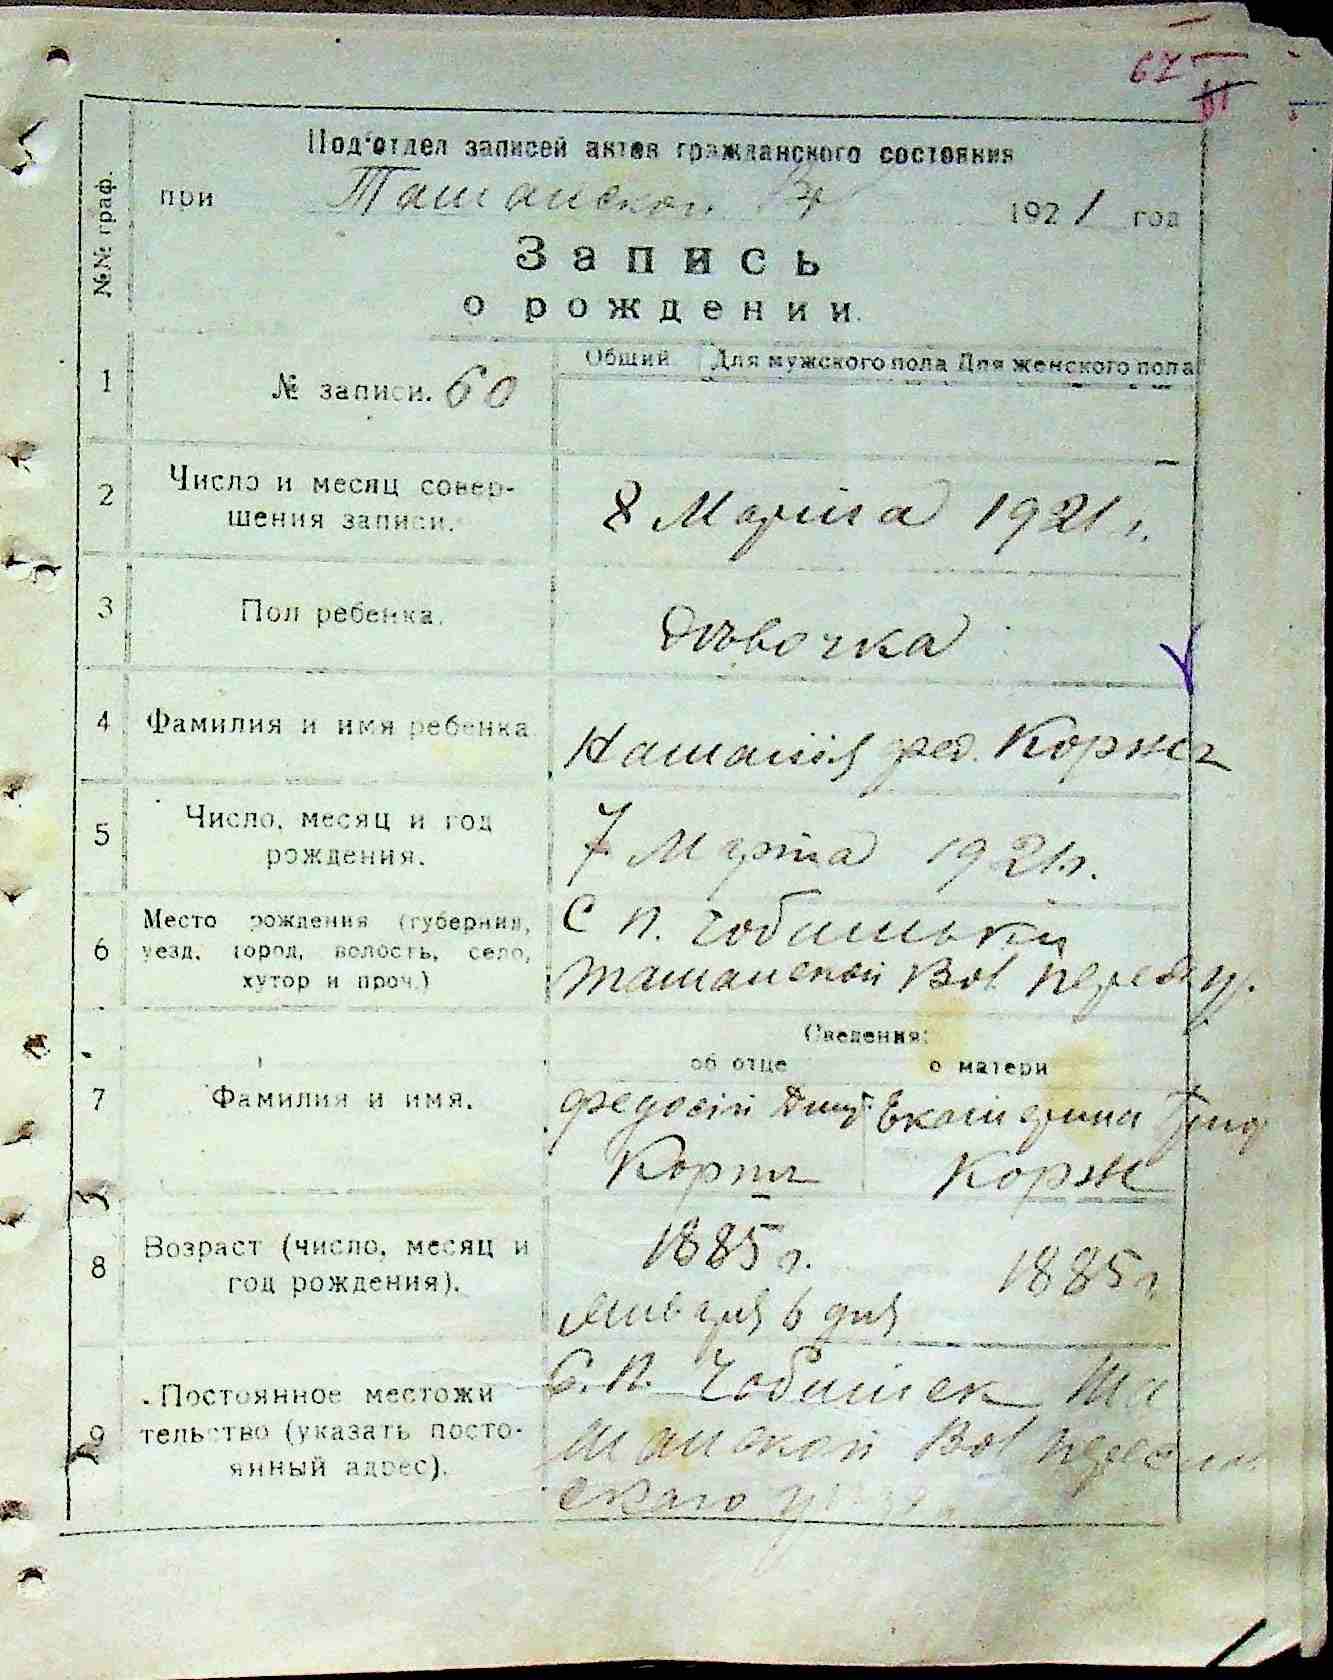 67
61
Под'отдел записей актов гражданского состояния
при Ташанской 1921 год
Запись
о рождении.
№№ граф.
Общий Для мужского пола Для женского пола
1 № записи. 60
2 Число и месяц совер-
шения записи.
8 Марта 1921 г.
3 Пол ребенка.
Дѣвочка
4 Фамилия и имя ребенка
Наталія Фед. Корж
5 Число, месяц и год
рождения.
7 Марта 1921 г.
6 Место рождения (губерния,
уезд, город, волость, село,
хутор и проч.)
С П.
Ташанской Вол
Сведения:
об отце о матери
7 Фамилия и имя.
Федосій Дмит. Екатерина
Корж Корж
8 Возраст (число, месяц и
год рождения).
1885 г. 1885 г
Января 6 дня
9 Постоянное местожи
тельство (указать посто-
янный адрес).
С. П. Та
шанской Вол
скаго